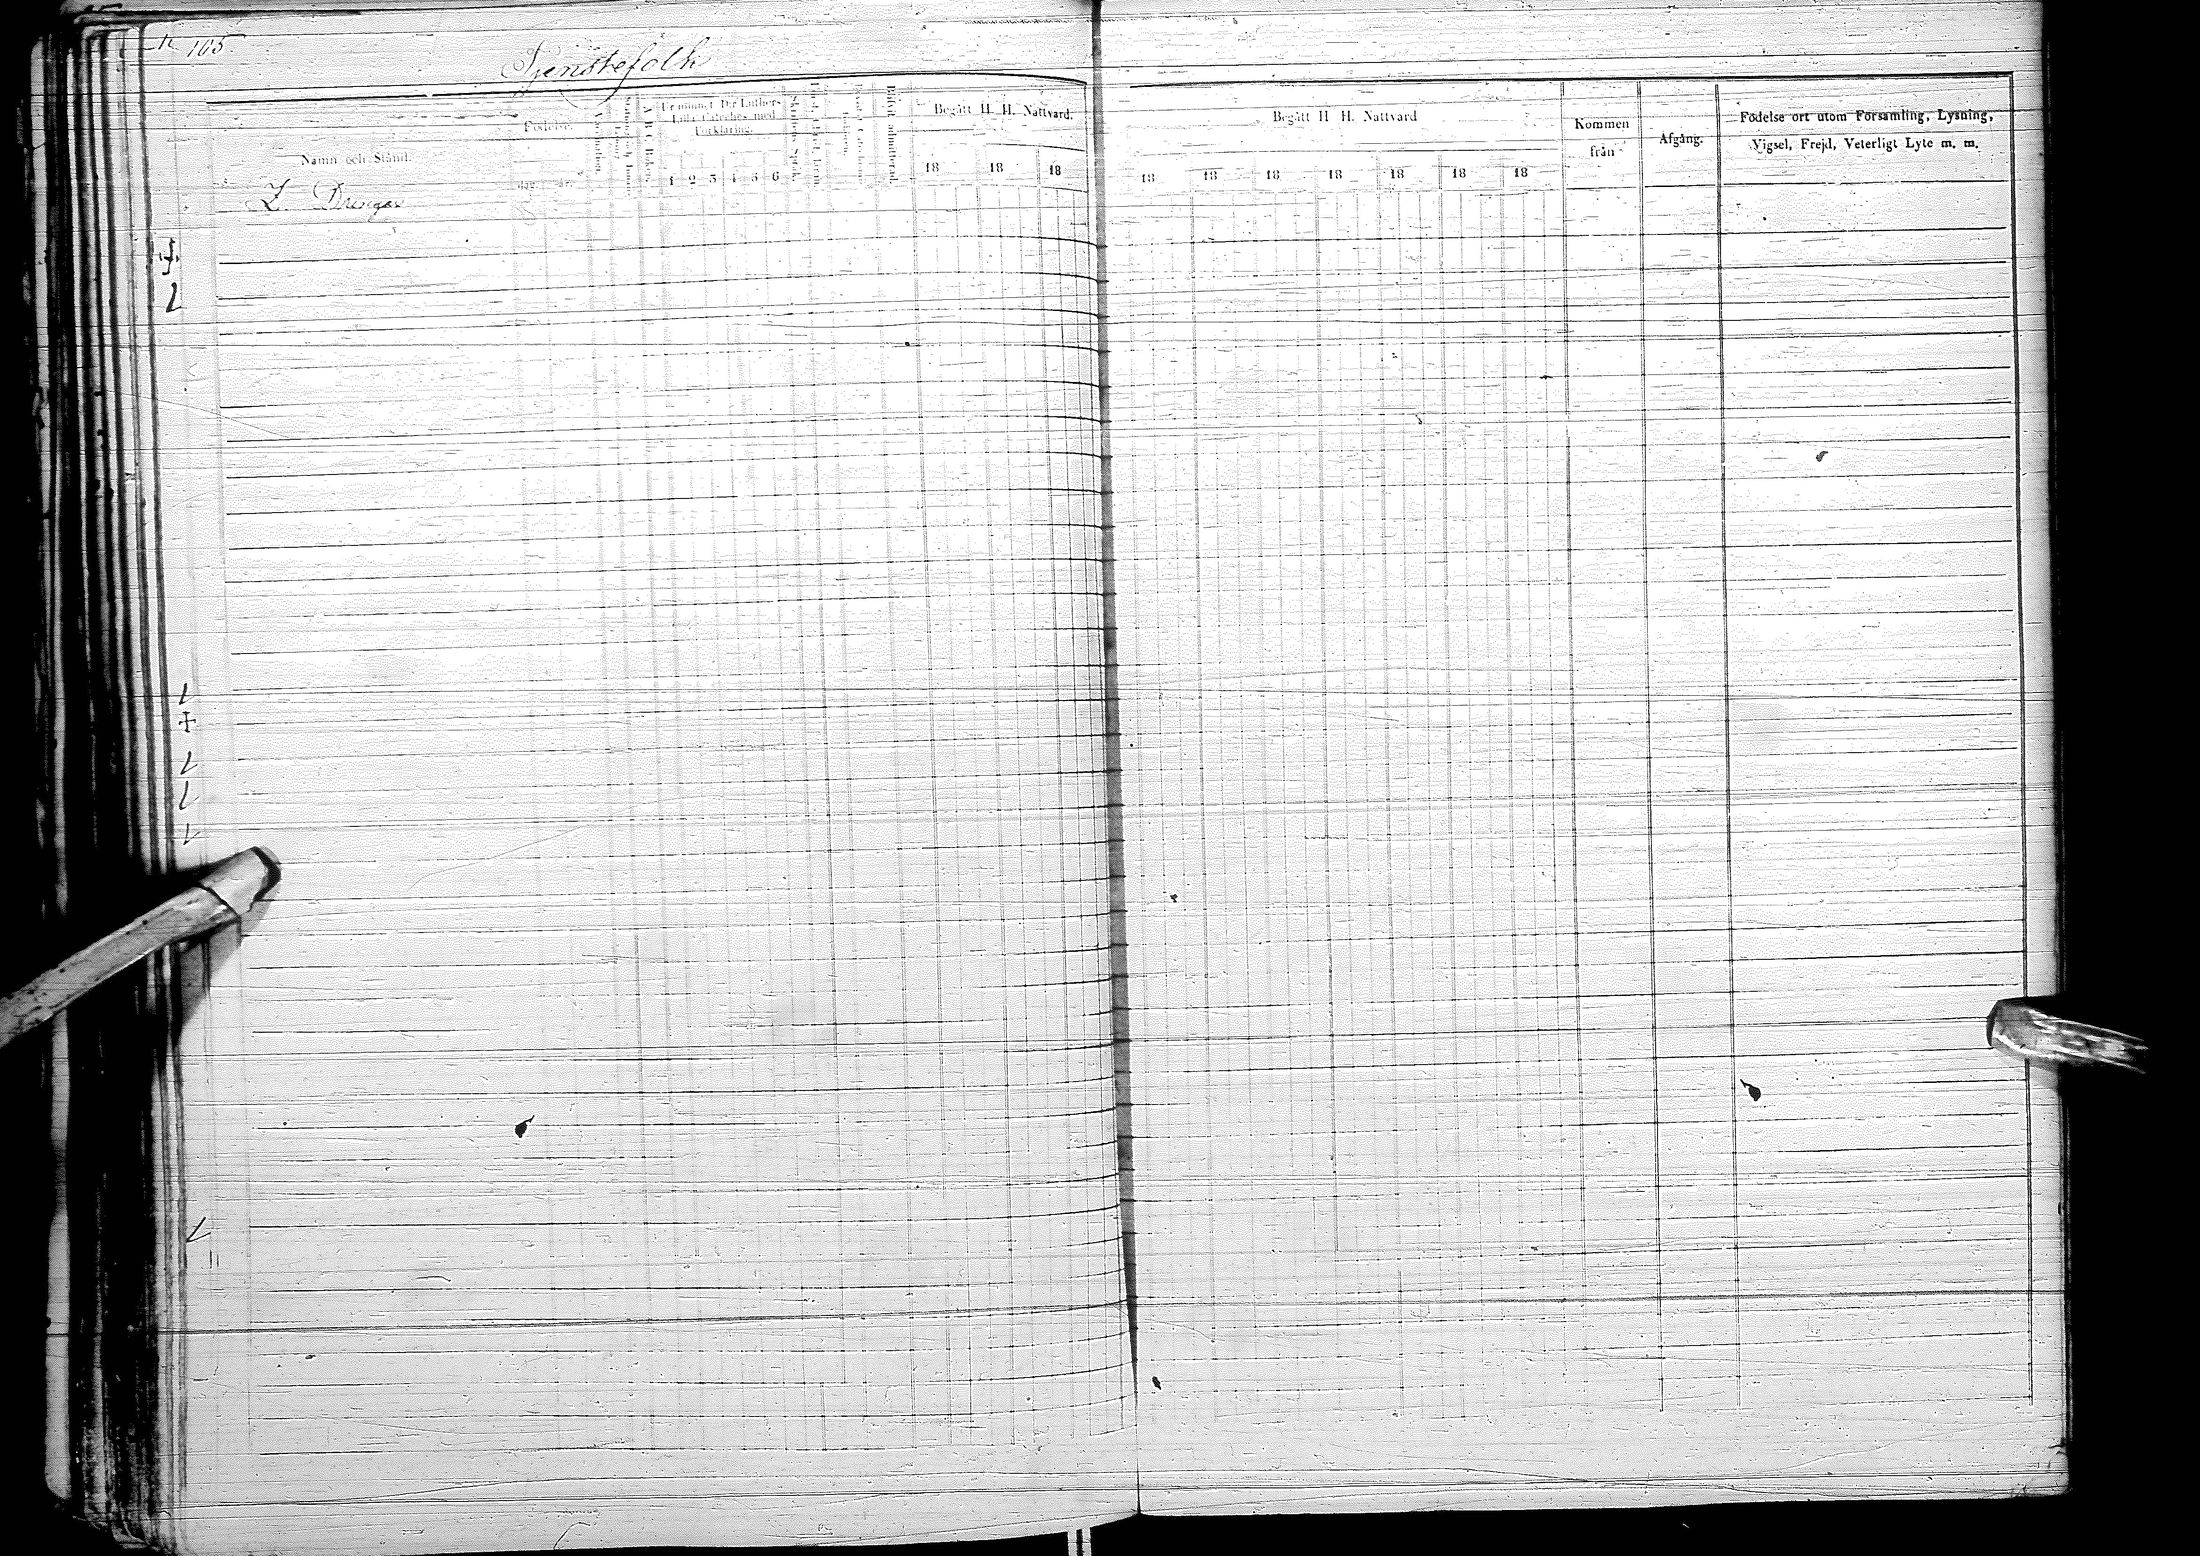 165
Tjenstefolk
Namn och Stånd.
Födelse.
dag. år.
Utminst. D:r Luthers
Lilla Cateches med
Förklaring.
1 2 3 4 5 6
Begått H. H. Nattvard.
18 18 18
Begått H H. Nattvard
18 18 18 18 18 18 18
Kommen
från
Afgång.
Födelse ort utom Församling, Lysning,
Vigsel, Frejd, Veterligt Lyte m. m.
Z. Drengar